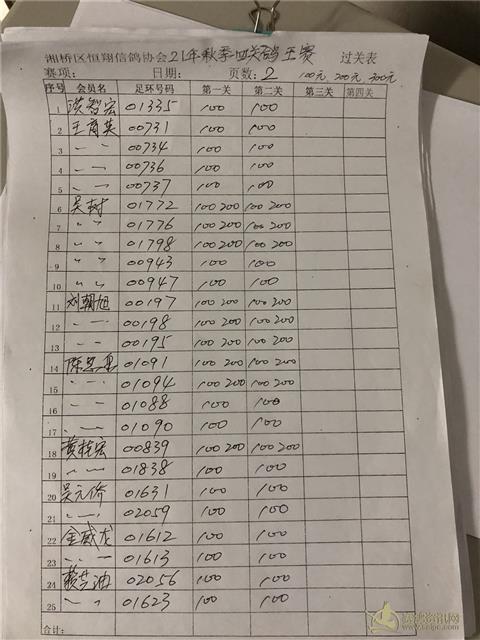 湘桥区恒翔信鸽协会21年秋季四关鸽王赛 过关表
赛项: 日期: 页数: 2 100元 200元 300元
序号 会员名 足环号码 第一关 第二关 第三关 第四关
1 洪智宏 01335 100 100
2 王育英 00731 100 100
3 〃 〃 00734 100 100
4 〃 〃 00736 100 100
5 〃 〃 00737 100 100
6 吴树 01772 100 200 100 200
7 〃 〃 01776 100 200 100 200
8 〃 〃 01798 100 200 100 200
9 〃 〃 00943 100 100
10 〃 〃 00947 100 100
11 刘朝旭 00197 100 200 100 200
12 〃 〃 00198 100 200 100 200
13 〃 〃 00195 100 200 100 200
14 陈 01091 100 200 100 200
15 〃 〃 01094 100 200 100 200
16 〃 〃 01088 100 100
17 〃 〃 01090 100 100
18 黄 宏 00839 100 200 100 200
19 〃 〃 01838 100 100
20 吴元侨 01631 100 100
21 〃 〃 02059 100 100
22 金威龙 01612 100 100
23 〃 〃 01613 100 100
24 赖 02056 100 100
25 〃 〃 01623 100 100
合计:
www.saipc.com